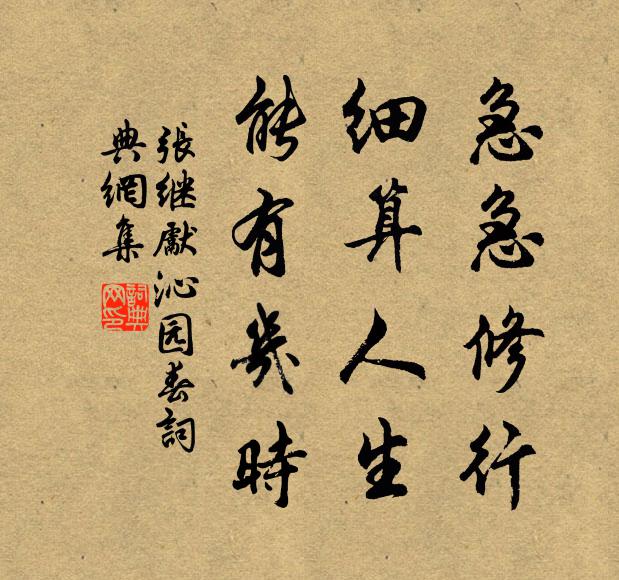 急急修行
细算人生
能有幾時
張继處沁园春詞
典網集
詞典网印